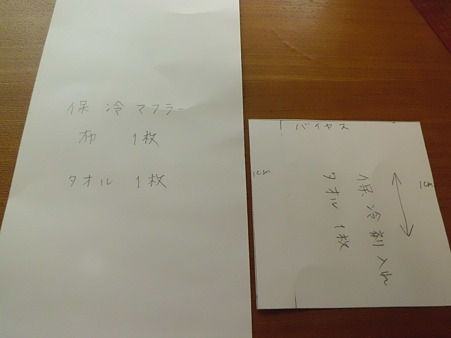 保冷マフラー
布 1枚
タオル 1枚
バイヤス
保冷剤入れ
タオル 1枚